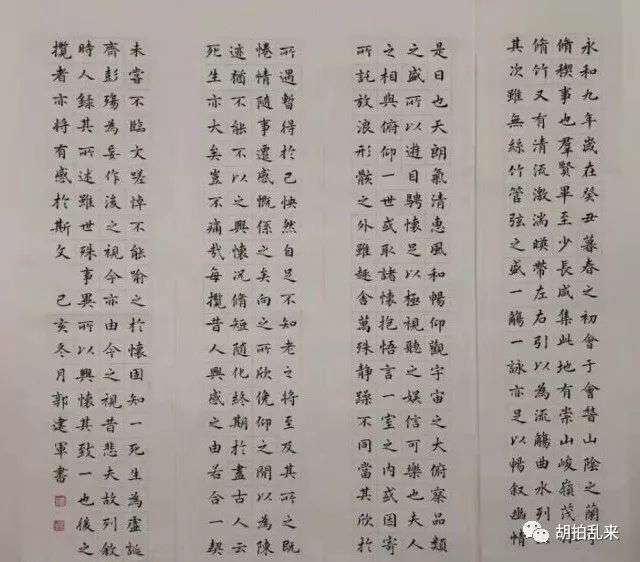 永和九年歲在癸丑暮春之初會于會稽山陰之蘭亭
脩禊事也羣賢畢至少長咸集此地有崇山峻嶺茂
脩竹又有清流激湍暎帶左右引以為流觴曲水列
其次雖無絲竹管弦之盛一觴一詠亦足以暢叙幽情
是日也天朗氣清惠風和暢仰觀宇宙之大俯察品類
之盛所以遊目騁懷足以極視聽之娛信可樂也夫人
之相與俯仰一世或取諸懷抱悟言一室之內或因寄
所託放浪形骸之外雖趣舍萬殊静躁不同當其欣於
所遇暫得於己怏然自足不知老之將至及其所之既
惓情隨事遷感慨係之矣向之所欣俛仰之閒以為陳
迹猶不能不以之興懷況脩短隨化終期於盡古人云
死生亦大矣豈不痛哉每攬昔人興感之由若合一契
未嘗不臨文嗟悼不能喻之於懷固知一死生為虛誕
齊彭殤為妄作後之視今亦由今之視昔悲夫故列敘
時人錄其所述雖世殊事異所以興懷其致一也後之
攬者亦將有感於斯文 己亥冬月郭建軍書
胡拍乱来